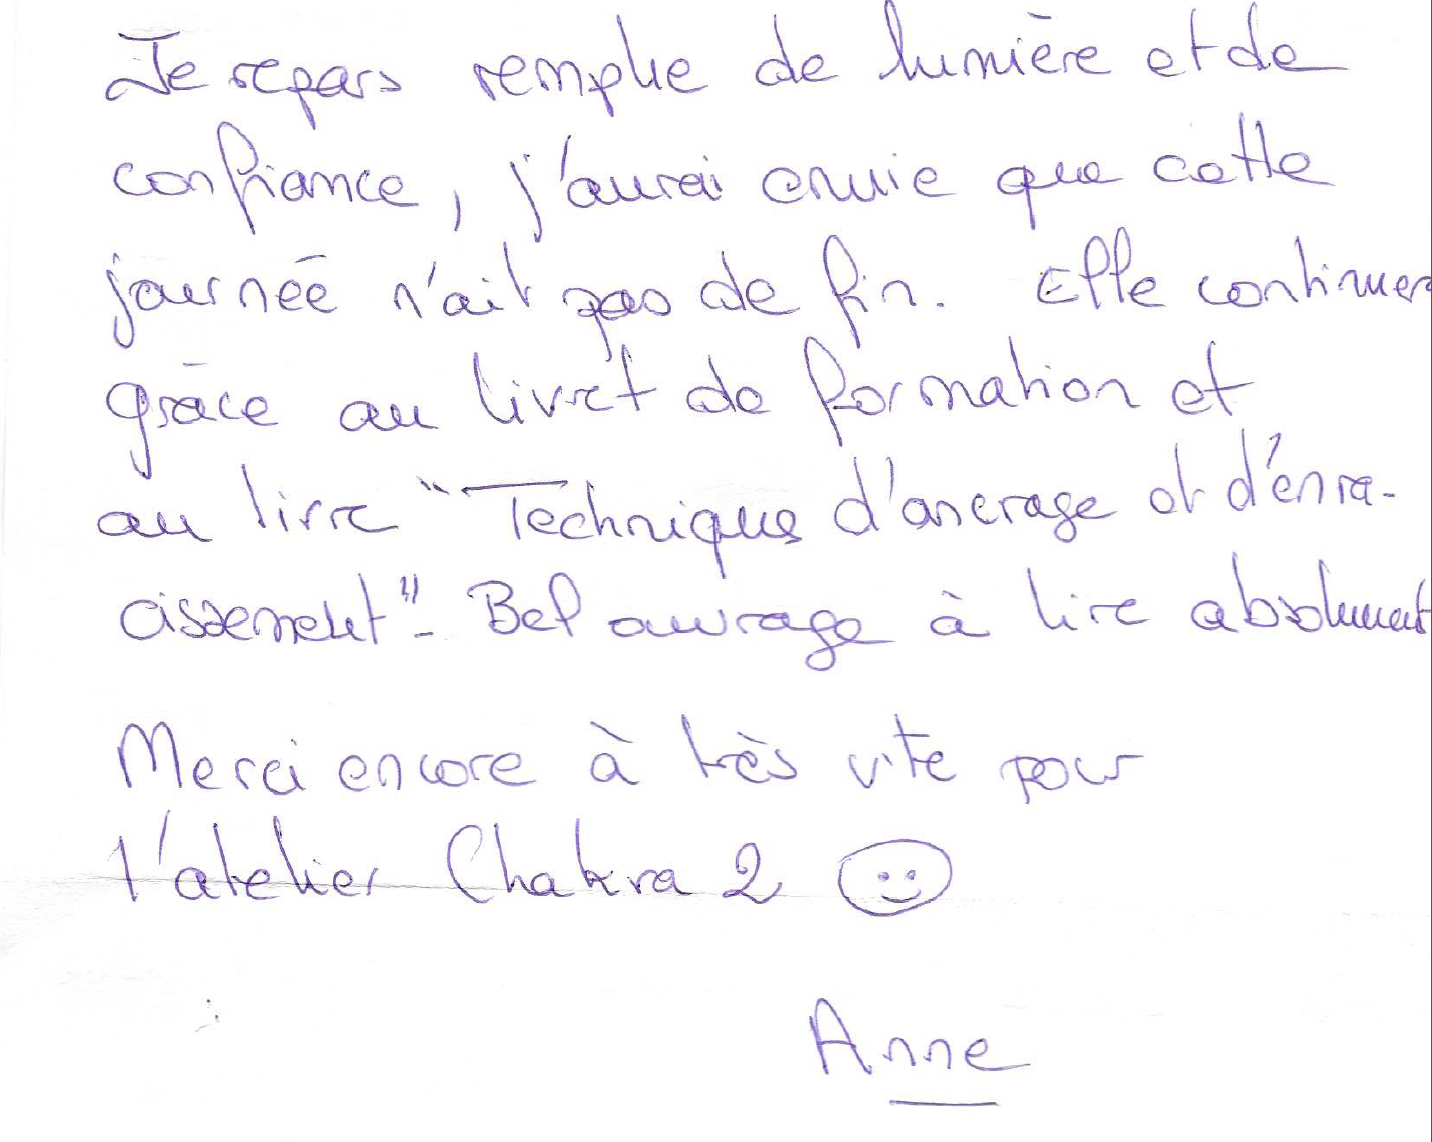 Je repars remplie de lumière et de
confiance, j'aurai envie que cette
journée n'ait pas de fin. Elle continuer
grâce au livret de formation et
au livre "Techniques d'ancrage et d'énra-
cissement". Bel ouvrage à lire absolument
Merci encore à très vite pour
l'atelier Chakra 2
Anne